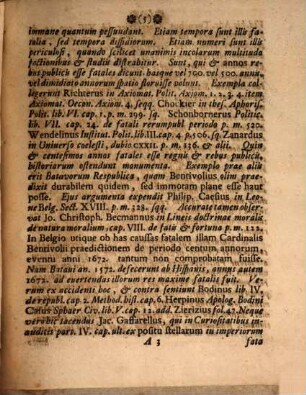 (5)
immane quantum pessundant. Etiam tempora sunt illis fa-
talia, sed tempora dissidiorum. Etiam numeri sunt illis
periculosi, quando scilicet unanimis incolarum multitudo
factionibus & studiis distrahitur. Sunt, qui & annos re-
rumpublicis esse fatales dicunt, basque vel 700. vel 500. annu,
vel dimidiato annorum spatio steruisse volunt. Exempla col-
legerunt Richterus in Axiomat. Polit. Axiom. 1. 2. 3. 4. item
Axiomat. Oecon. Axiom. 4. seqq. Chockier in thes. Aphoris.
Polit. lib. VI. cap. 1. p. m. 299. sq. Schonbornerus Politic.
lib. VII. cap. 24. de fatali rerumpubl. periodo p. m. 520.
Wendelinus Institut. Polit. lib. III. cap. 4. p. 506. sq. Zanardus
in Universo coelesti, dubio CXXII. p. m. 126. & alii. Quin
& centesimos annos fatales esse regnis & rebus publicis,
historiarum ostendunt monumenta. Exemplo prae aliis
erit Batavorum Respublica, quam Bentivolius olim prae-
dixit durabilem quidem, sed immotam plane esse haut
posse. Ejus argumenta expendit Philip. Caesius in Leo-
ne Belg. Sect. XVIII. p. m. 228. sqq. Accurate tamen obser-
vat Jo. Christoph. Becmannus in Lineis doctrinae morali-
de natura moralium, cap. VIII. de fato & fortuna p. m. 122.
In Belgio utique ob has caussas fatalem illam Cardinalis
Bentivoli praedictionem de periodo centum annorum,
eventu anni 1672. tantum non comprobatam fuisse.
Nam Batavi an. 1572. defecerunt ab Hispanis, annus autem
1672. ad evertendas illorum res maxime fatalis fuit. Ve-
rum ex occidenti hoc, & contra sentiunt Bodinus lib. IV.
de republ. cap. 2. Method. hist. cap. 6. Herpinus Apolog. Bodini
Casus Sphaer. Civ. lib. V. cap. 12. add. Zierizius fol. 47. Neque
verò hic tacendus Jac. Gaffarellus, qui in Curiositatibus in-
auditis part. IV. cap. ult. ex positu stellarum in imperiorum
A 3 fata